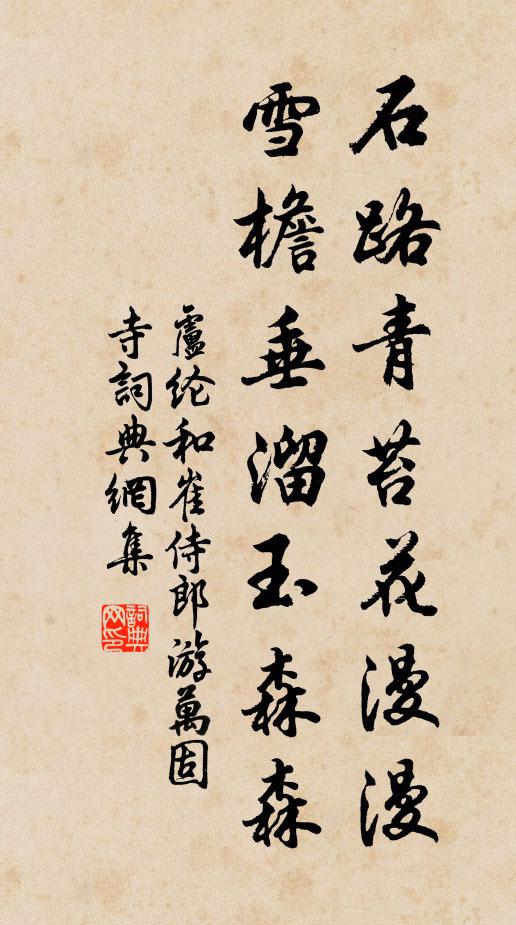 石路青苔花漫漫
雪檐垂溜玉森森
盧纶和崔侍郎游萬固
寺詞典網集
詞典網印